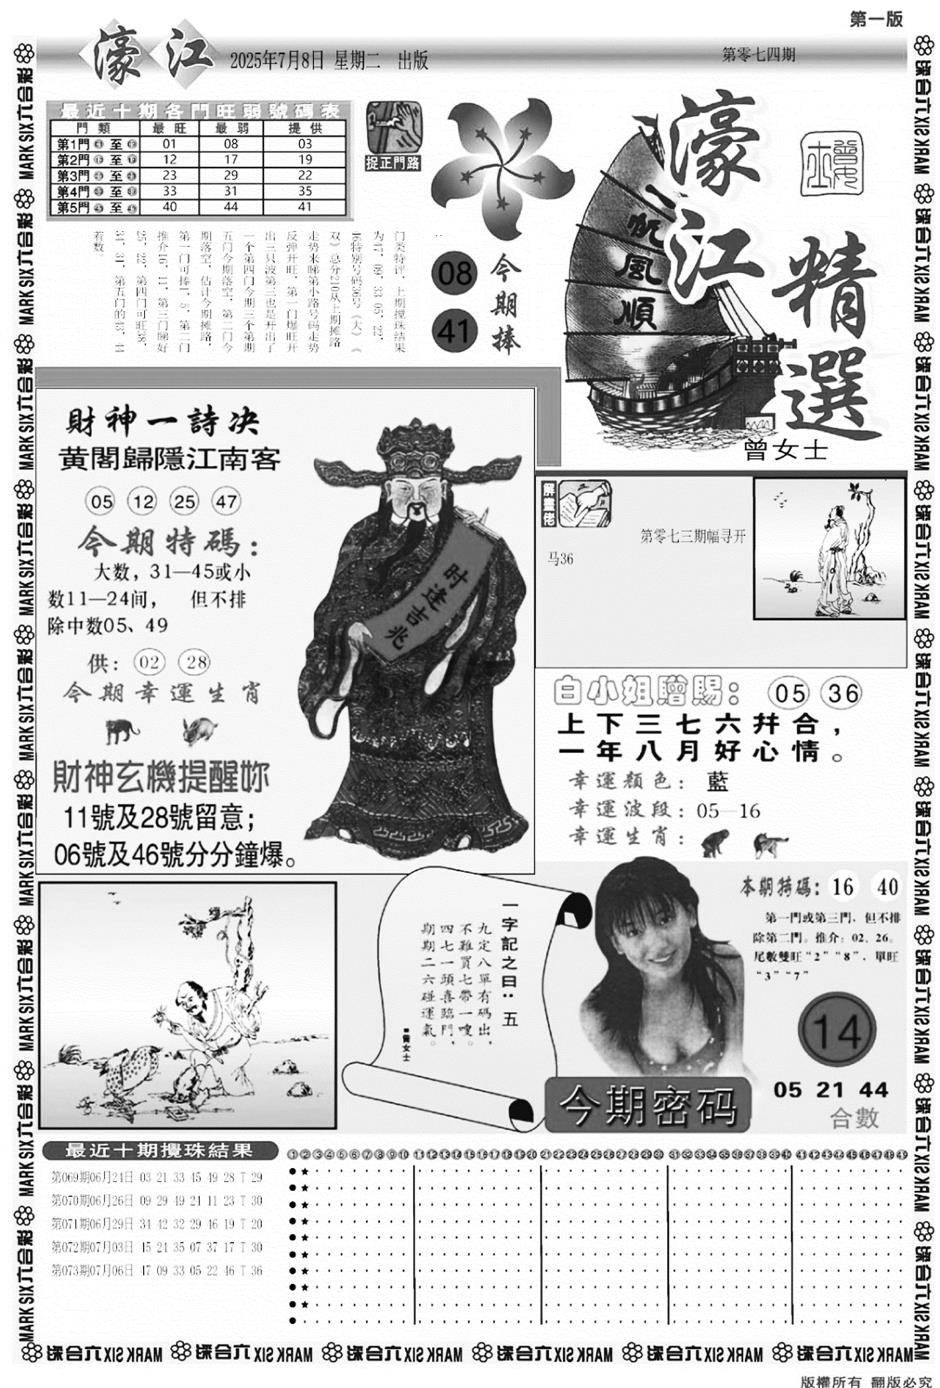 第一版
濠江
2025年7月8日 星期二 出版
第零七四期
最近十期各門旺弱號碼表
門類 最旺 最弱 提供
第1門 至 01 08 03
第2門 至 12 17 19
第3門 至 23 29 22
第4門 至 33 31 35
第5門 至 40 44 41
捉正門路
门类特评，上期搅珠结果
为47、09、33 05、22、
46特别号码36号（大）（
双）总分210从上期摊路
走势来睇第小路号码走势
反弹开旺，第一门爆旺开
出三只波第三也是开出了
一个第四门今期三个第期
五门今期落空，第二门今
期落空，估计今期摊路，
第一门可捧1、5，第二门
推介16、11，第三门睇好
25、22，第四门可旺38、
34、31，第五门的43、44
着数。
今期捧
08
41
一帆風順
濠江精選
曾女士
財神一詩决
黄閣歸隱江南客
05 12 25 47
今期特碼：
大数，31—45或小
数11—24间， 但不排
除中数05、49
供：02 28
今期幸運生肖
財神玄機提醒妳
11號及28號留意；
06號及46號分分鐘爆。
时逢吉兆
解畫佬
第零七三期幅寻开
马36
白小姐贈賜：05 36
上下三七六幷合，
一年八月好心情。
幸運顏色：藍
幸運波段：05—16
幸運生肖：
一字記之曰：五
九定八單有碼出，
不雖買七帶一嗖。
四七一頭喜臨門，
期期二六碰運氣。
■曾女士
本期特碼：16 40
第一門或第三門，但不排
除第二門。推介：02、26。
尾數雙旺“2”“8”，單旺
“3”“7”
14
05 21 44
合數
今期密码
最近十期攪珠結果
第069期06月24日 03 21 33 45 49 28 T 29
第070期06月26日 09 29 49 24 11 23 T 30
第071期06月29日 34 42 32 29 46 19 T 20
第072期07月03日 45 24 35 07 37 17 T 30
第073期07月06日 47 09 33 05 22 46 T 36
①②③④⑤⑥⑦⑧⑨⑩⑪⑫⑬⑭⑮⑯⑰⑱⑲⑳㉑㉒㉓㉔㉕㉖㉗㉘㉙㉚㉛㉜㉝㉞㉟㊱㊲㊳㊴㊵㊶㊷㊸㊹㊺㊻㊼㊽㊾
六合彩 MARK SIX
版權所有 翻版必究